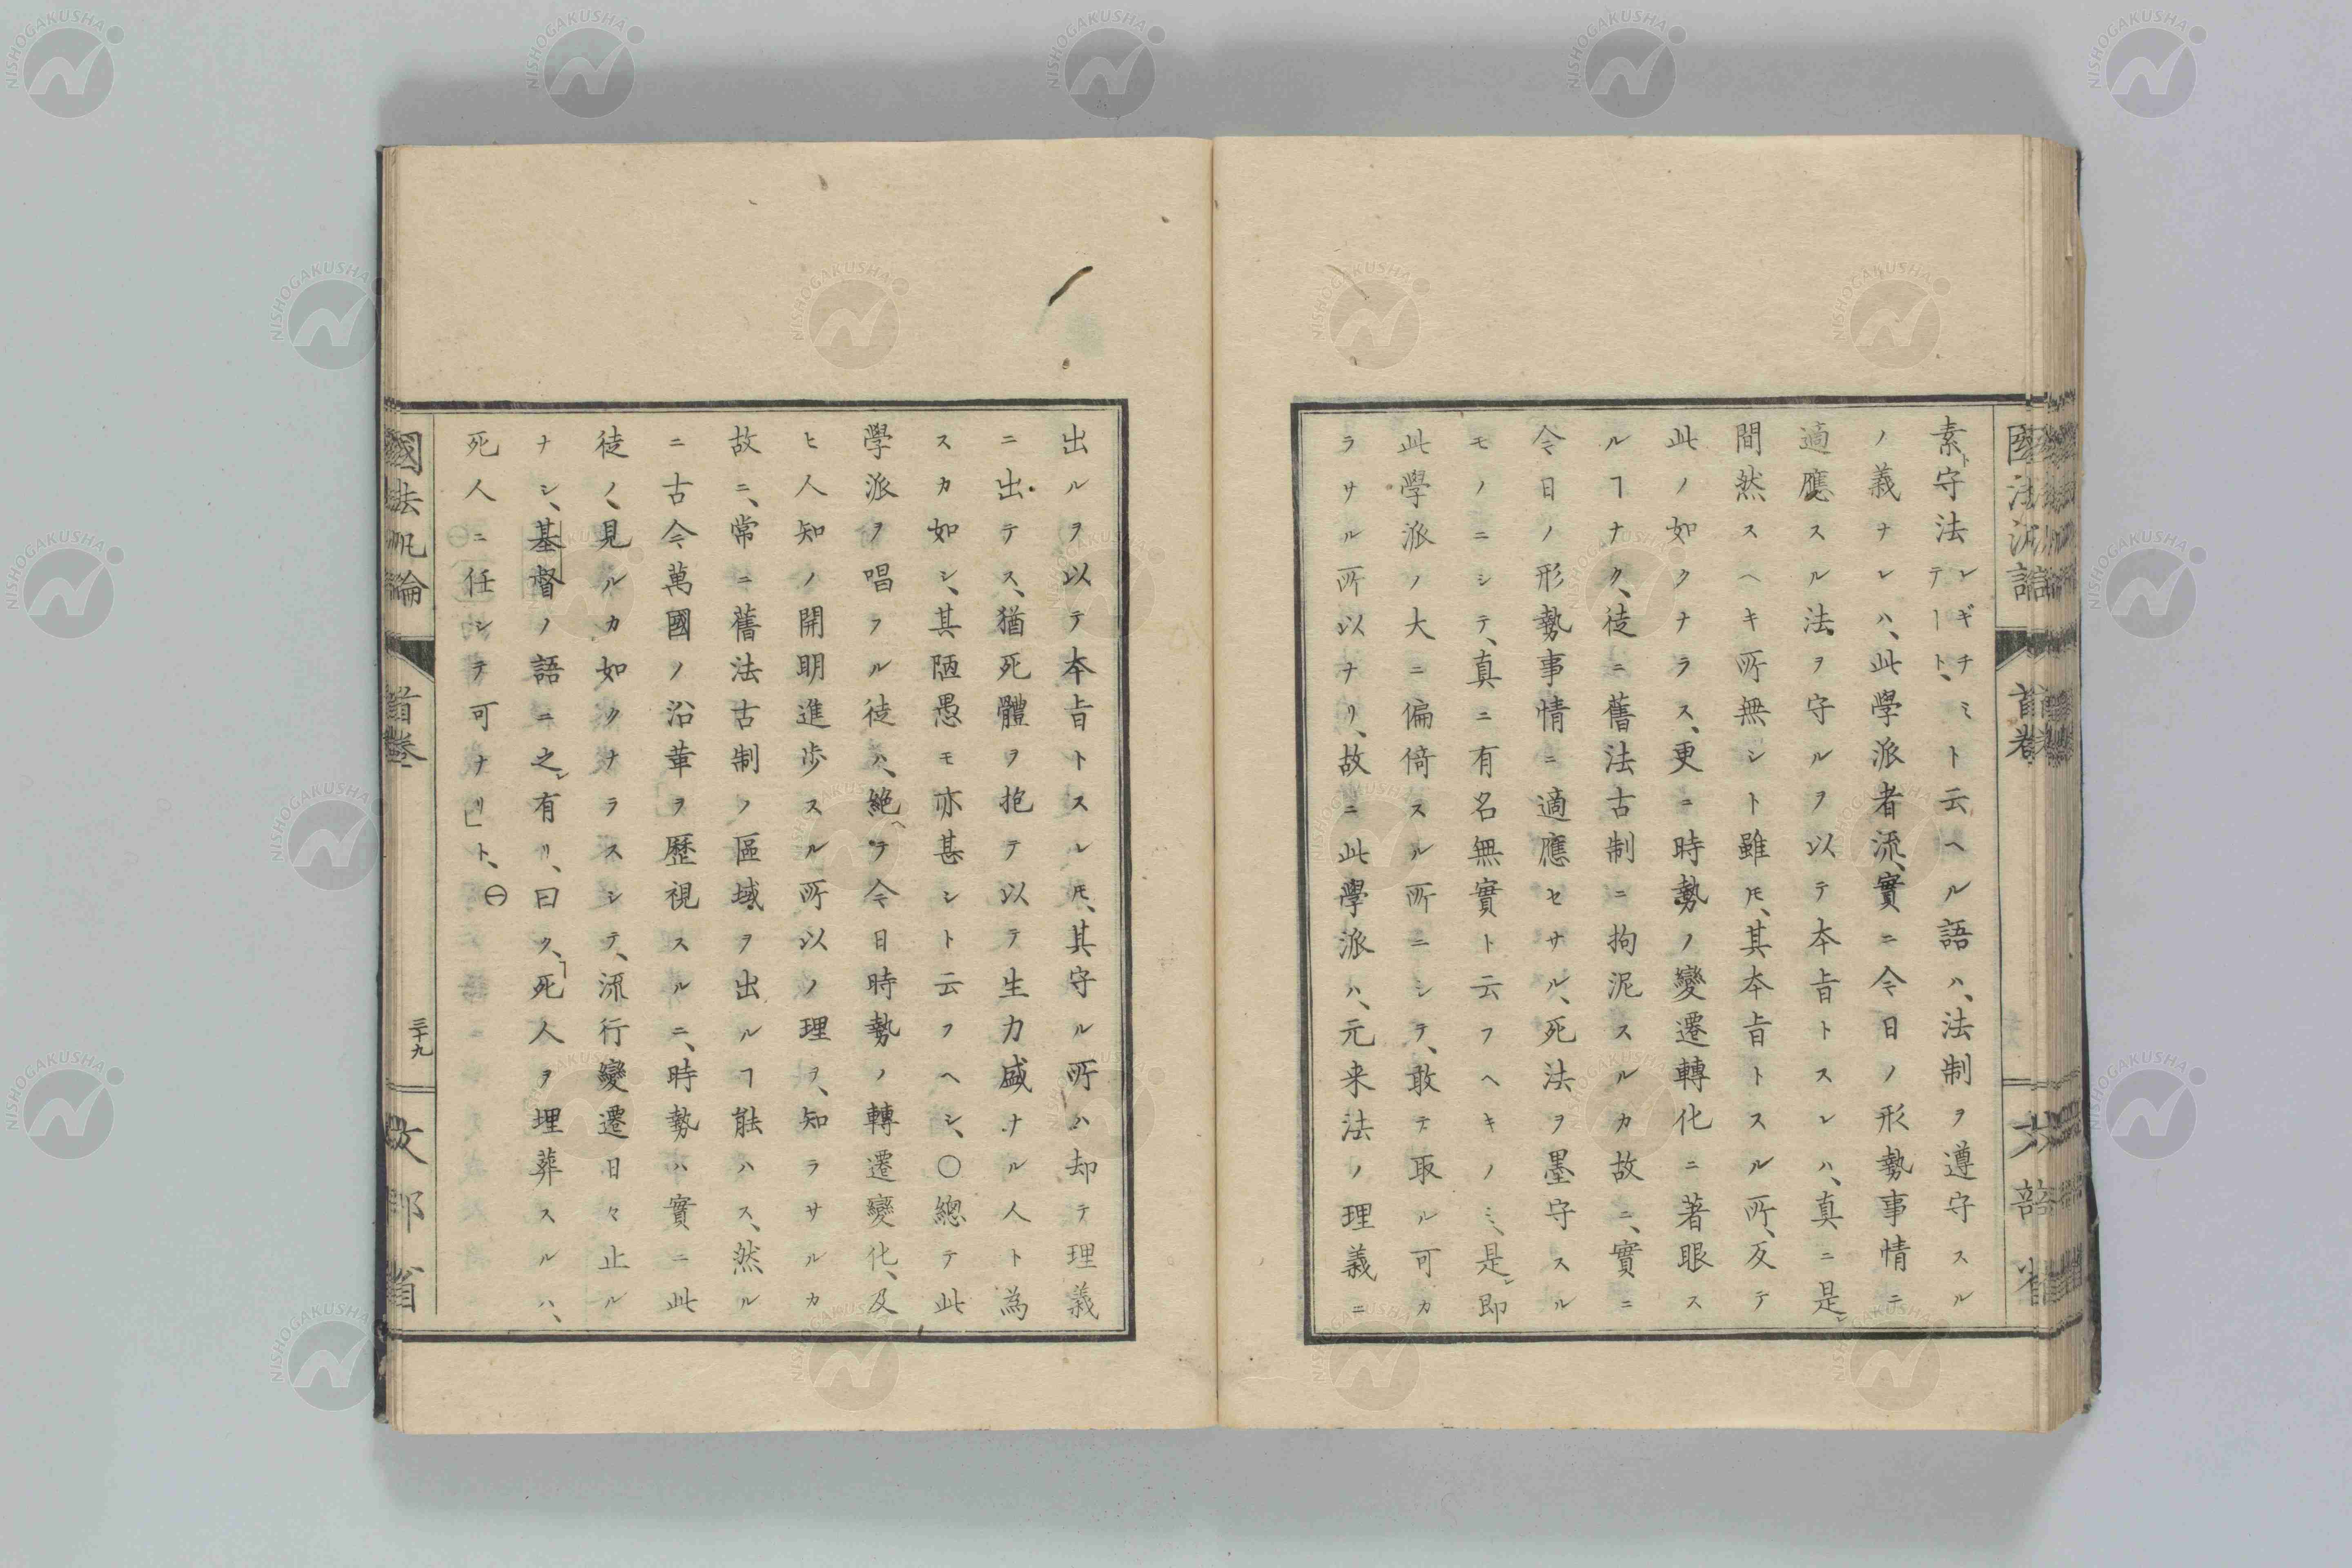 素ト守法レギチミテートト云ヘル語ハ、法制ヲ遵守スル
ノ義ナレハ、此學派者流、實ニ今日ノ形勢事情ニ
適應スル法ヲ守ルヲ以テ本旨トスレハ、真ニ是レ
間然スヘキ所無シト雖𪜈、其本旨トスル所、反テ
此ノ如クナラス、更ニ時勢ノ變遷轉化ニ著眼ス
ルヿナク、徒ニ舊法古制ニ拘泥スルカ故ニ、實ニ
今日ノ形勢事情ニ適應セサル、死法ヲ墨守スル
モノニシテ、真ニ有名無實ト云フヘキノミ、是レ即
此學派ノ大ニ偏倚スル所ニシテ、敢テ取ル可カ
ラサル所以ナリ、故ニ此學派ハ、元来法ノ理義ニ
出ルヲ以テ本旨トスレ𪜈、其守ル所ハ却テ理義
ニ出テス、猶死體ヲ抱テ以テ生力盛ナル人ト為
スカ如シ、其陋愚モ亦甚シト云フヘシ、〇總テ此
學派ヲ唱フル徒ハ、絶ヘテ今日時勢ノ轉遷變化、及
ヒ人知ノ開明進歩スル所以ノ理ヲ、知ラサルカ
故ニ、常ニ舊法古制ノ區域ヲ出ルヿ能ハス、然ル
ニ古今萬國ノ沿革ヲ歷視スルニ、時勢ハ實ニ此
徒ノ、見ルカ如クナラスシテ、流行變遷日々止ル
ナシ、基督ノ語ニ之レ有リ、曰ク、「死人ヲ埋葬スルハ、
死人ニ任シテ可ナリ」ト、㊀
國法汎論
首卷
三十九
文部省